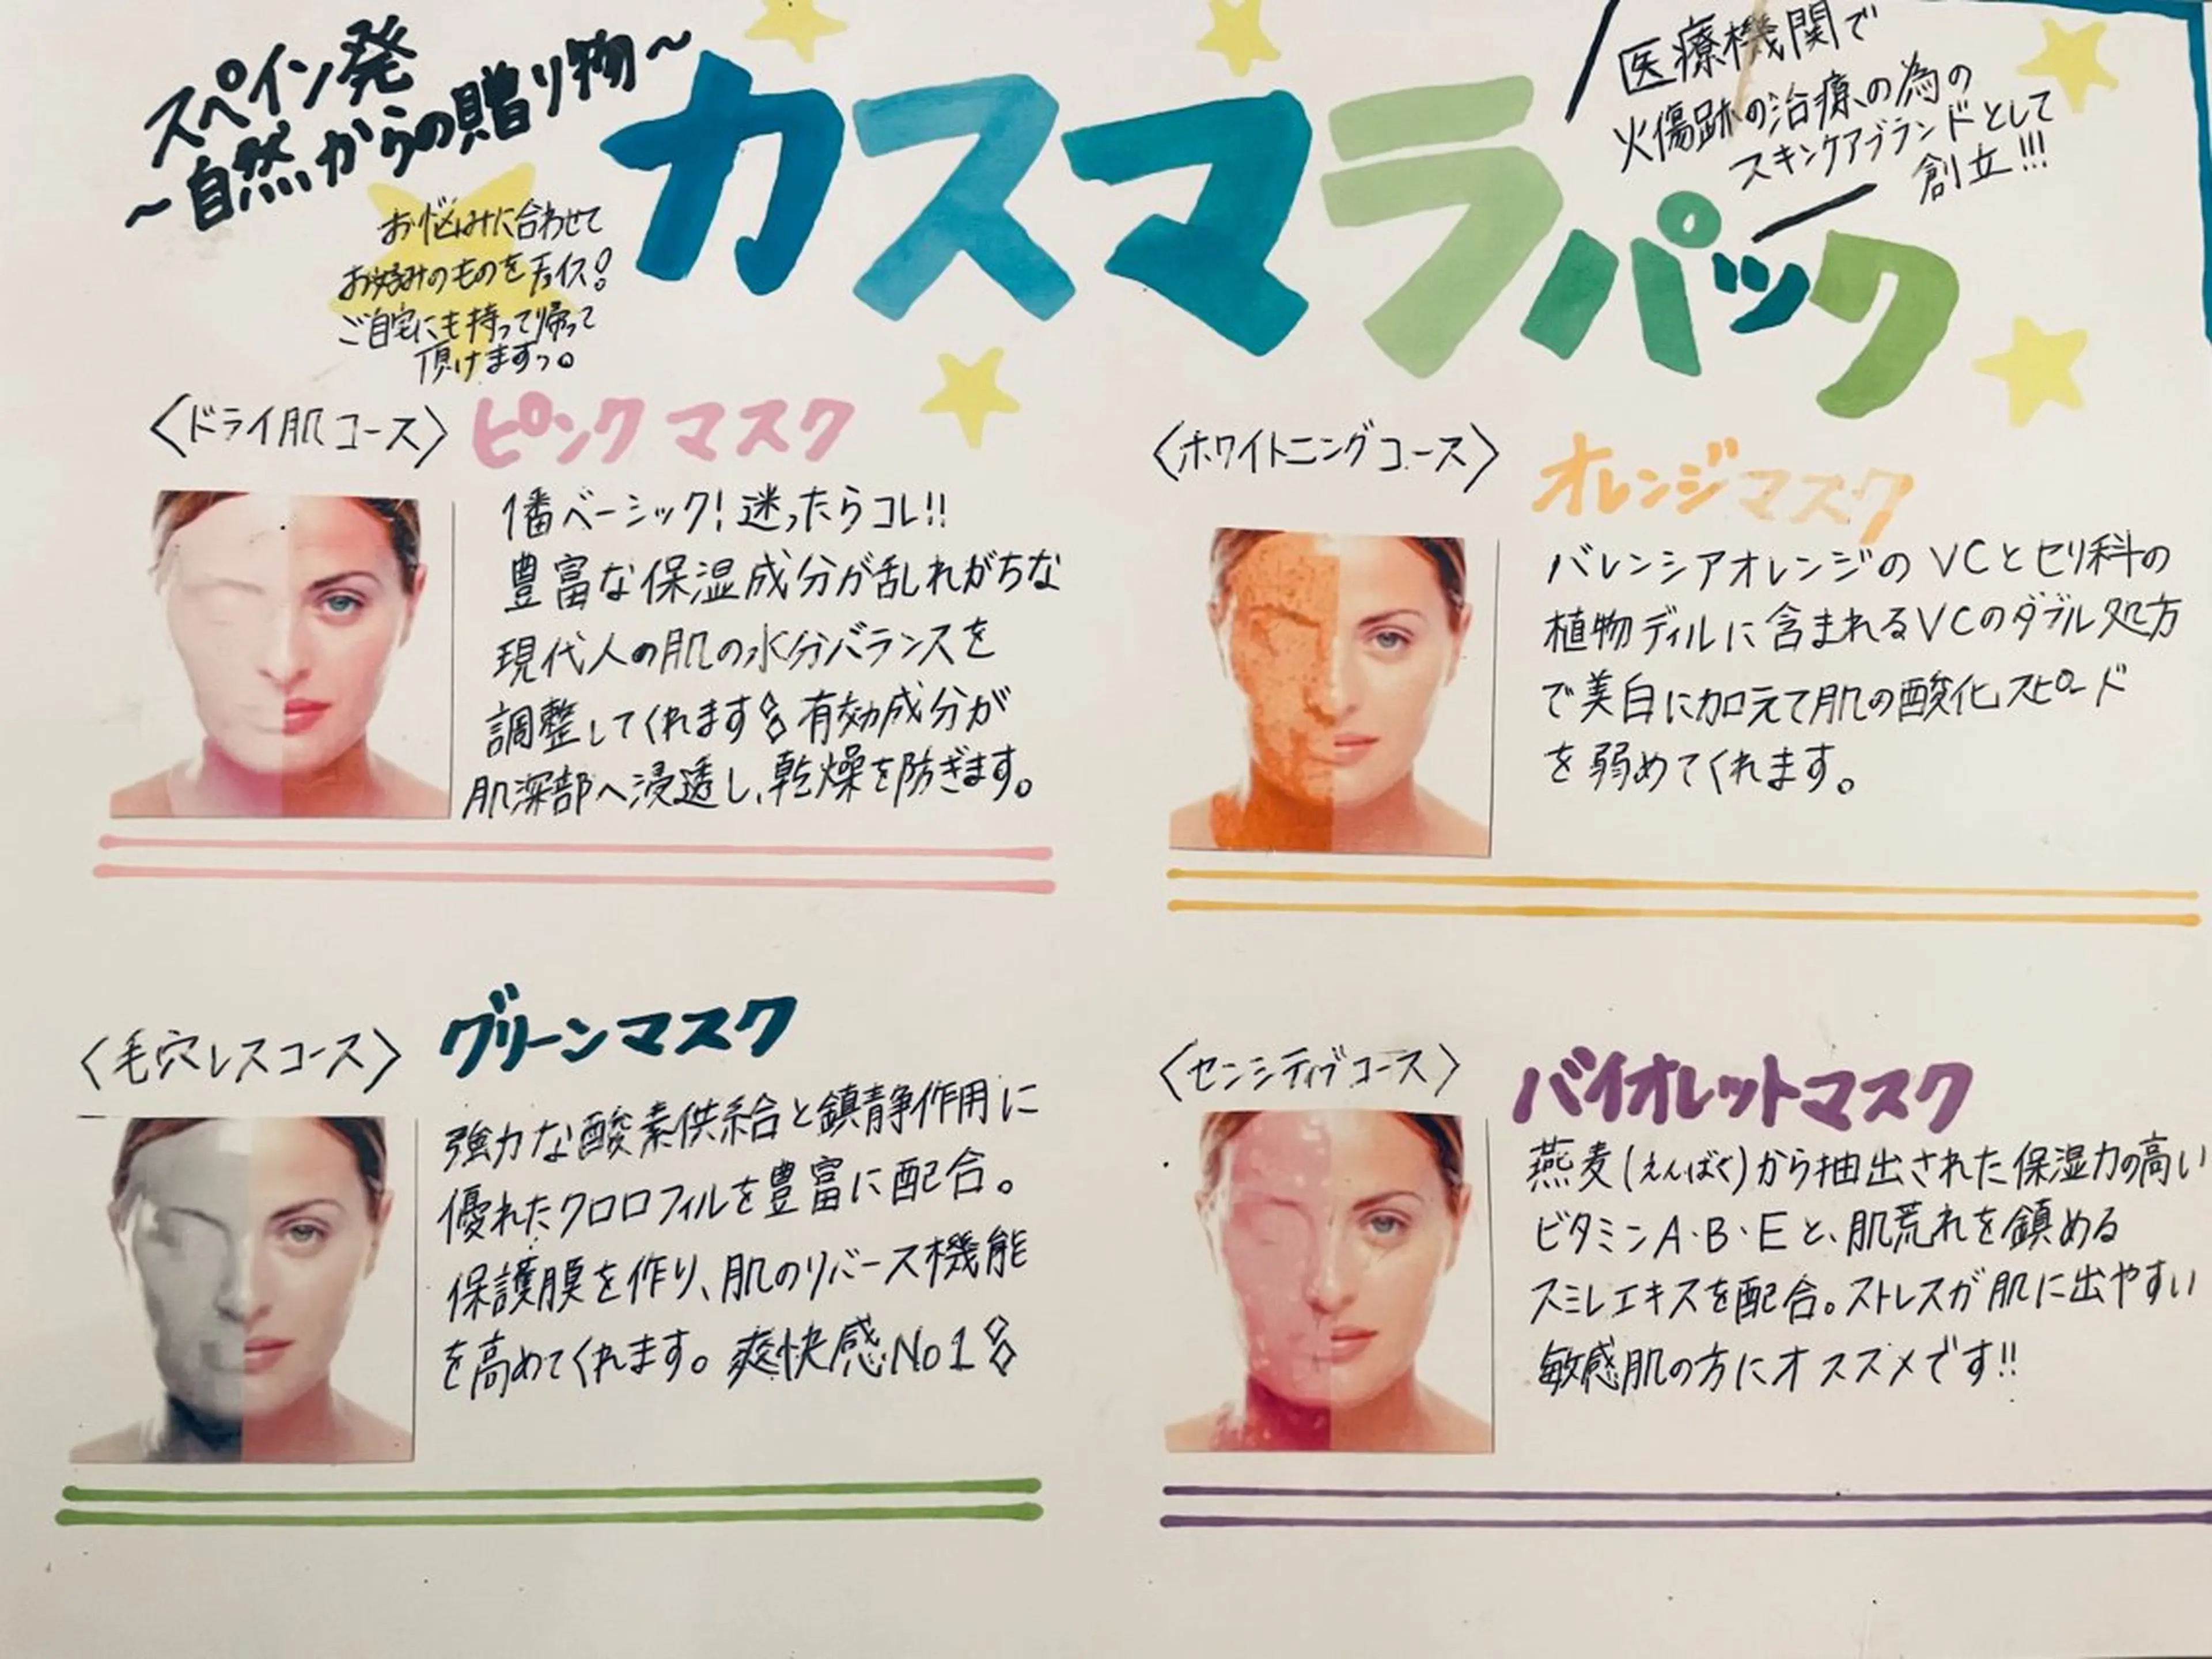 スペイン発
～自然からの贈り物～
カスマラパック
医療機関で
火傷跡の治療の為の
スキンケアブランドとして
創立!!!
お悩みに合わせて
お好みのものをチョイス!
ご自宅にも持って帰って
頂けますっ。
〈ドライ肌コース〉 ピンクマスク
1番ベーシック!迷ったらコレ!!
豊富な保湿成分が乱れがちな
現代人の肌の水分バランスを
調整してくれます 有効成分が
肌深部へ浸透し、乾燥を防ぎます。
〈ホワイトニングコース〉 オレンジマスク
バレンシアオレンジのVCとセリ科の
植物ディルに含まれるVCのダブル処方
で美白に加えて肌の酸化スピード
を弱めてくれます。
〈毛穴レスコース〉 グリーンマスク
強力な酸素供給と鎮静作用に
優れたクロロフィルを豊富に配合。
保護膜を作り、肌のリバース機能
を高めてくれます。爽快感No1
〈センシティブコース〉 バイオレットマスク
燕麦(えんばく)から抽出された保湿力の高い
ビタミンA・B・Eと、肌荒れを鎮める
スミレエキスを配合。ストレスが肌に出やすい
敏感肌の方にオススメです!!